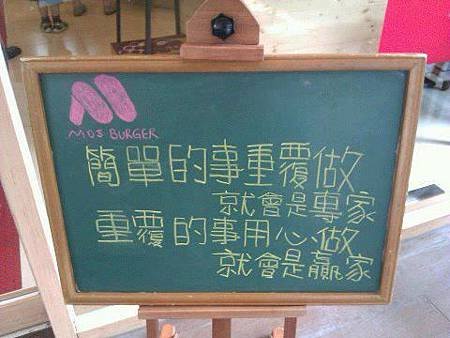 MOS BURGER
簡單的事重覆做
就會是專家
重覆的事用心做
就會是贏家